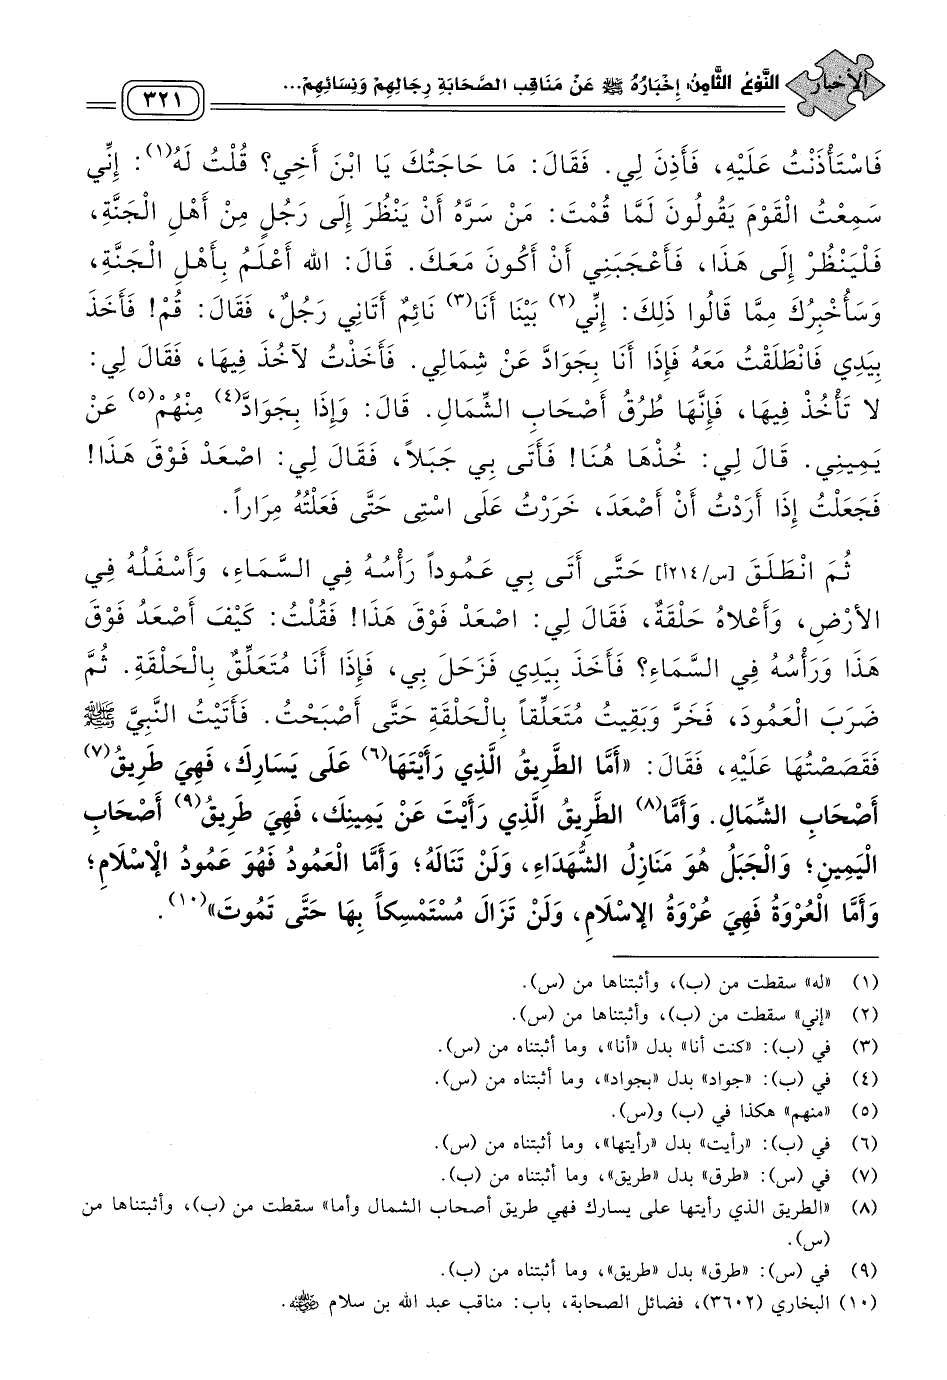 الأخبار النَّوْعُ الثَّامِنُ: إِخْبَارُهُ ﷺ عَنْ مَنَاقِبِ الصَّحَابَةِ رِجَالِهِمْ وَنِسَائِهِمْ...
٣٢١
فَاسْتَأْذَنْتُ عَلَيْهِ، فَأَذِنَ لِي. فَقَالَ: مَا حَاجَتُكَ يَا ابْنَ أَخِي؟ قُلْتُ لَهُ(١): إِنِّي
سَمِعْتُ الْقَوْمَ يَقُولُونَ لَمَّا قُمْتَ: مَنْ سَرَّهُ أَنْ يَنْظُرَ إِلَى رَجُلٍ مِنْ أَهْلِ الْجَنَّةِ،
فَلْيَنْظُرْ إِلَى هَذَا، فَأَعْجَبَنِي أَنْ أَكُونَ مَعَكَ. قَالَ: الله أَعْلَمُ بِأَهْلِ الْجَنَّةِ،
وَسَأُخْبِرُكَ مِمَّا قَالُوا ذَلِكَ: إِنِّي(٢) بَيْنَا أَنَا(٣) نَائِمٌ أَتَانِي رَجُلٌ، فَقَالَ: قُمْ! فَأَخَذَ
بِيَدِي فَانْطَلَقْتُ مَعَهُ فَإِذَا أَنَا بِجَوَادَّ عَنْ شِمَالِي. فَأَخَذْتُ لآخُذَ فِيهَا، فَقَالَ لِي:
لا تَأْخُذْ فِيهَا، فَإِنَّهَا طُرُقُ أَصْحَابِ الشِّمَالِ. قَالَ: وَإِذَا بِجَوَادَّ(٤) مِنْهُمْ(٥) عَنْ
يَمِينِي. قَالَ لِي: خُذْهَا هُنَا! فَأَتَى بِي جَبَلاً، فَقَالَ لِي: اصْعَدْ فَوْقَ هَذَا!
فَجَعَلْتُ إِذَا أَرَدْتُ أَنْ أَصْعَدَ، خَرَرْتُ عَلَى اسْتِى حَتَّى فَعَلْتُهُ مِرَاراً.
ثُمَ انْطَلَقَ [س/٢١٤أ] حَتَّى أَتَى بِي عَمُوداً رَأْسُهُ فِي السَّمَاءِ، وَأَسْفَلُهُ فِي
الأَرْضِ، وَأَعْلاهُ حَلْقَةٌ، فَقَالَ لِي: اصْعَدْ فَوْقَ هَذَا! فَقُلْتُ: كَيْفَ أَصْعَدُ فَوْقَ
هَذَا وَرَأْسُهُ فِي السَّمَاءِ؟ فَأَخَذَ بِيَدِي فَزَحَلَ بِي، فَإِذَا أَنَا مُتَعَلِّقٌ بِالْحَلْقَةِ. ثُمَّ
ضَرَبَ الْعَمُودَ، فَخَرَّ وَبَقِيتُ مُتَعَلِّقاً بِالْحَلْقَةِ حَتَّى أَصْبَحْتُ. فَأَتَيْتُ النَّبِيَّ ﷺ
فَقَصَصْتُهَا عَلَيْهِ، فَقَالَ: «أَمَّا الطَّرِيقُ الَّذِي رَأَيْتَهَا(٦) عَلَى يَسَارِكَ، فَهِيَ طَرِيقُ(٧)
أَصْحَابِ الشِّمَالِ. وَأَمَّا(٨) الطَّرِيقُ الَّذِي رَأَيْتَ عَنْ يَمِينِكَ، فَهِيَ طَرِيقُ(٩) أَصْحَابِ
الْيَمِينِ؛ وَالْجَبَلُ هُوَ مَنَازِلُ الشُّهَدَاءِ، وَلَنْ تَنَالَهُ؛ وَأَمَّا الْعَمُودُ فَهُوَ عَمُودُ الإِسْلَامِ؛
وَأَمَّا الْعُرْوَةُ فَهِيَ عُرْوَةُ الإِسْلَامِ، وَلَنْ تَزَالَ مُسْتَمْسِكاً بِهَا حَتَّى تَمُوتَ»(١٠).
(١) «له» سقطت من (ب)، وأثبتناها من (س).
(٢) «إني» سقطت من (ب)، وأثبتناها من (س).
(٣) في (ب): «كنت أنا» بدل «أنا»، وما أثبتناه من (س).
(٤) في (ب): «جواد» بدل «بجواد»، وما أثبتناه من (س).
(٥) «منهم» هكذا في (ب) و(س).
(٦) في (ب): «رأيت» بدل «رأيتها»، وما أثبتناه من (س).
(٧) في (س): «طرق» بدل «طريق»، وما أثبتناه من (ب).
(٨) «الطريق الذي رأيتها على يسارك فهي طريق أصحاب الشمال وأما» سقطت من (ب)، وأثبتناها من
(س).
(٩) في (س): «طرق» بدل «طريق»، وما أثبتناه من (ب).
(١٠) البخاري (٣٦٠٢)، فضائل الصحابة، باب: مناقب عبد الله بن سلام رضي الله عنه.